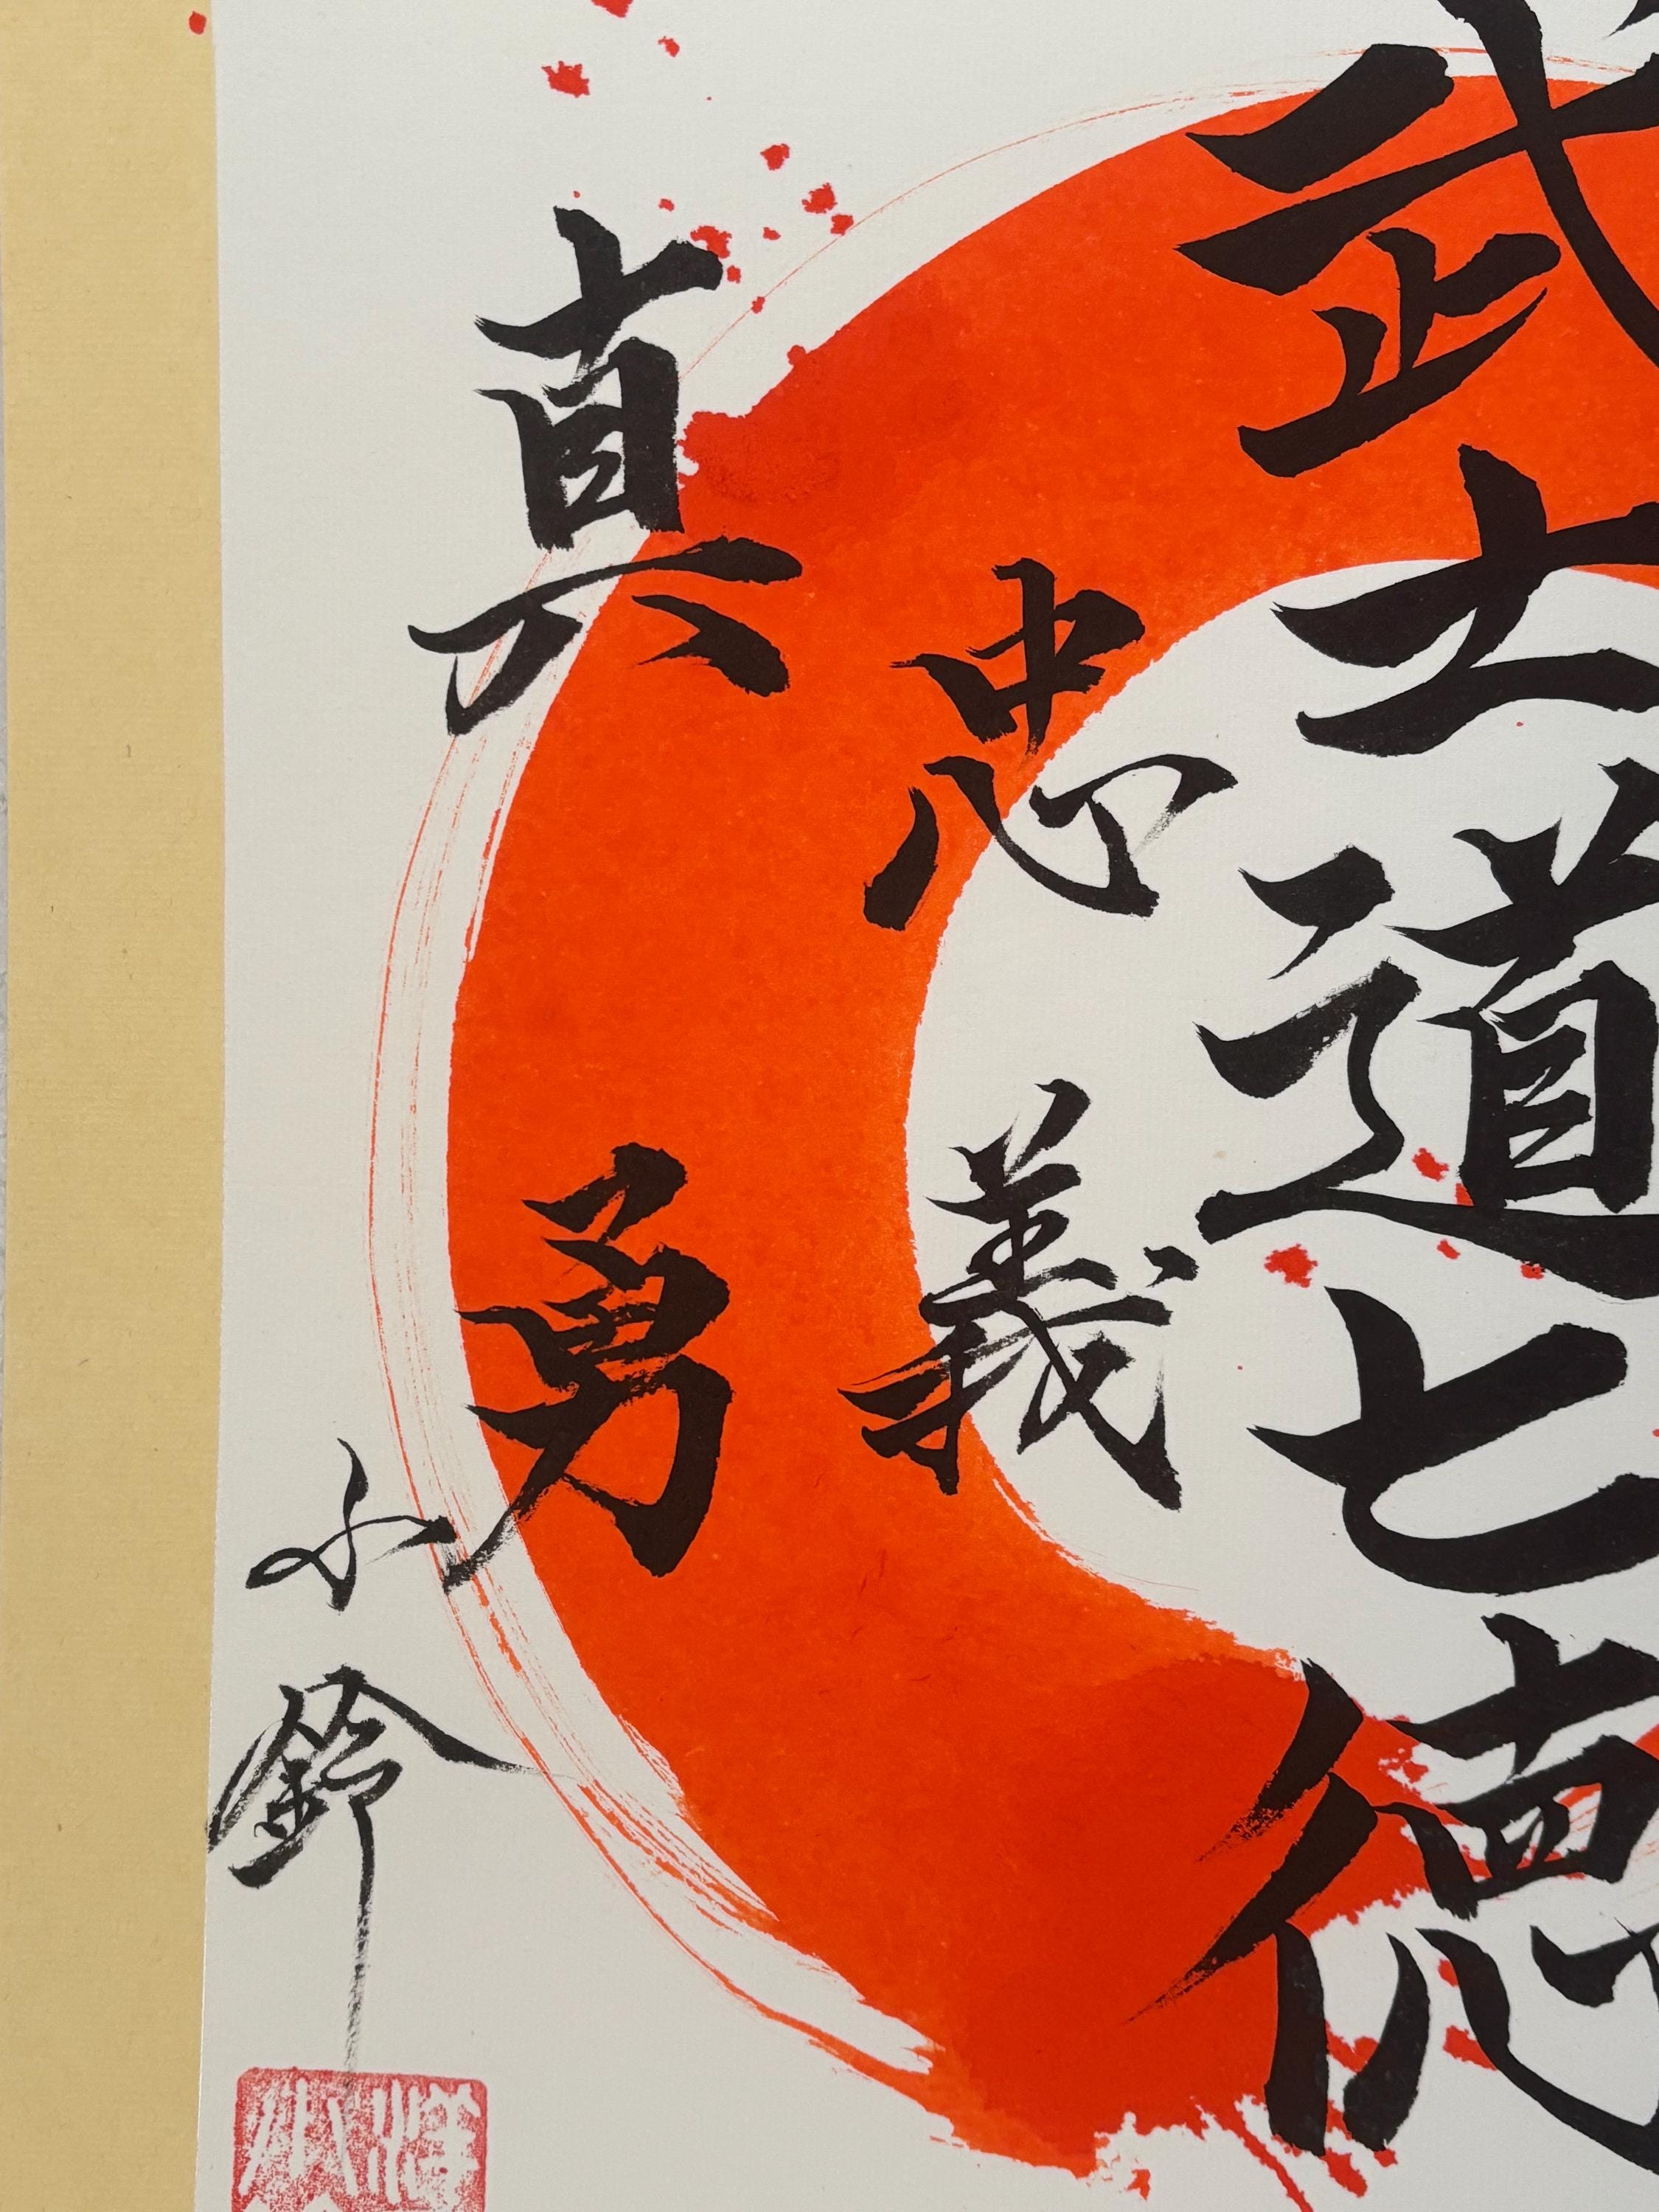 武士道七徳
忠
義
真
勇
小鈴